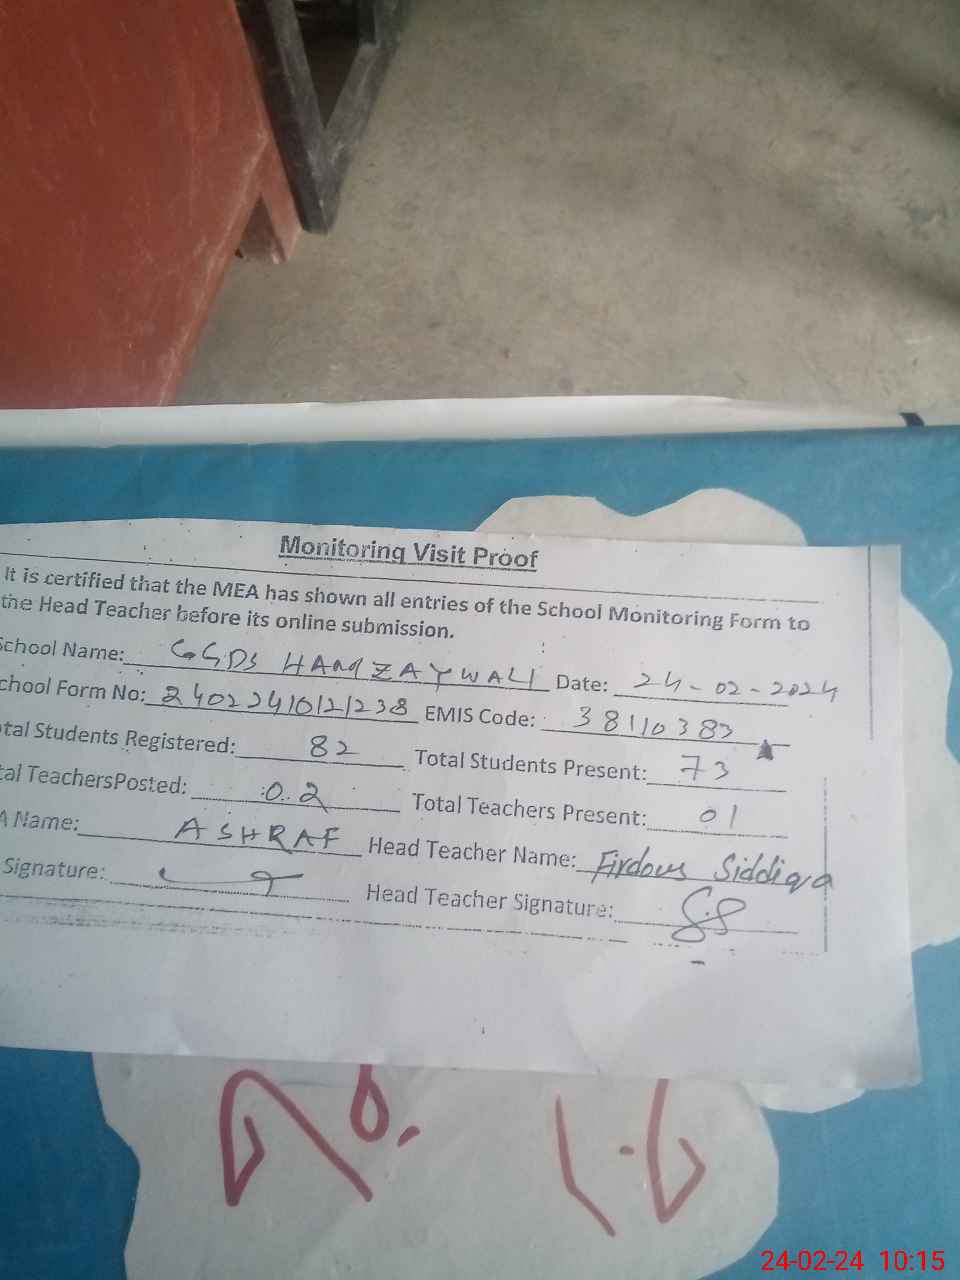 Monitoring Visit Proof
It is certified that the MEA has shown all entries of the School Monitoring Form to
the Head Teacher before its online submission.
School Name: GGPS HAMZAYWALI Date: 24-02-2024
chool Form No: 24022410121238 EMIS Code: 38110383
tal Students Registered: 82 Total Students Present: 73
tal TeachersPosted: 02 Total Teachers Present: 01
A Name: ASHRAF Head Teacher Name: Firdous Siddiqa
Signature: Head Teacher Signature:
24-02-24 10:15